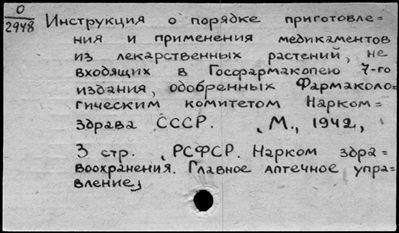 О
2948
Инструкция о порядке приготовле=
ния и применения медикаментов
из лекарственных растений, не
входящих в Госфармакопею 7-го
издания, одобренных Фармаколо=
гическим комитетом Нарком=
здрава СССР. М., 1942,
3 стр. РСФСР. Нарком здра=
воохранения. Главное аптечное упра=
вление